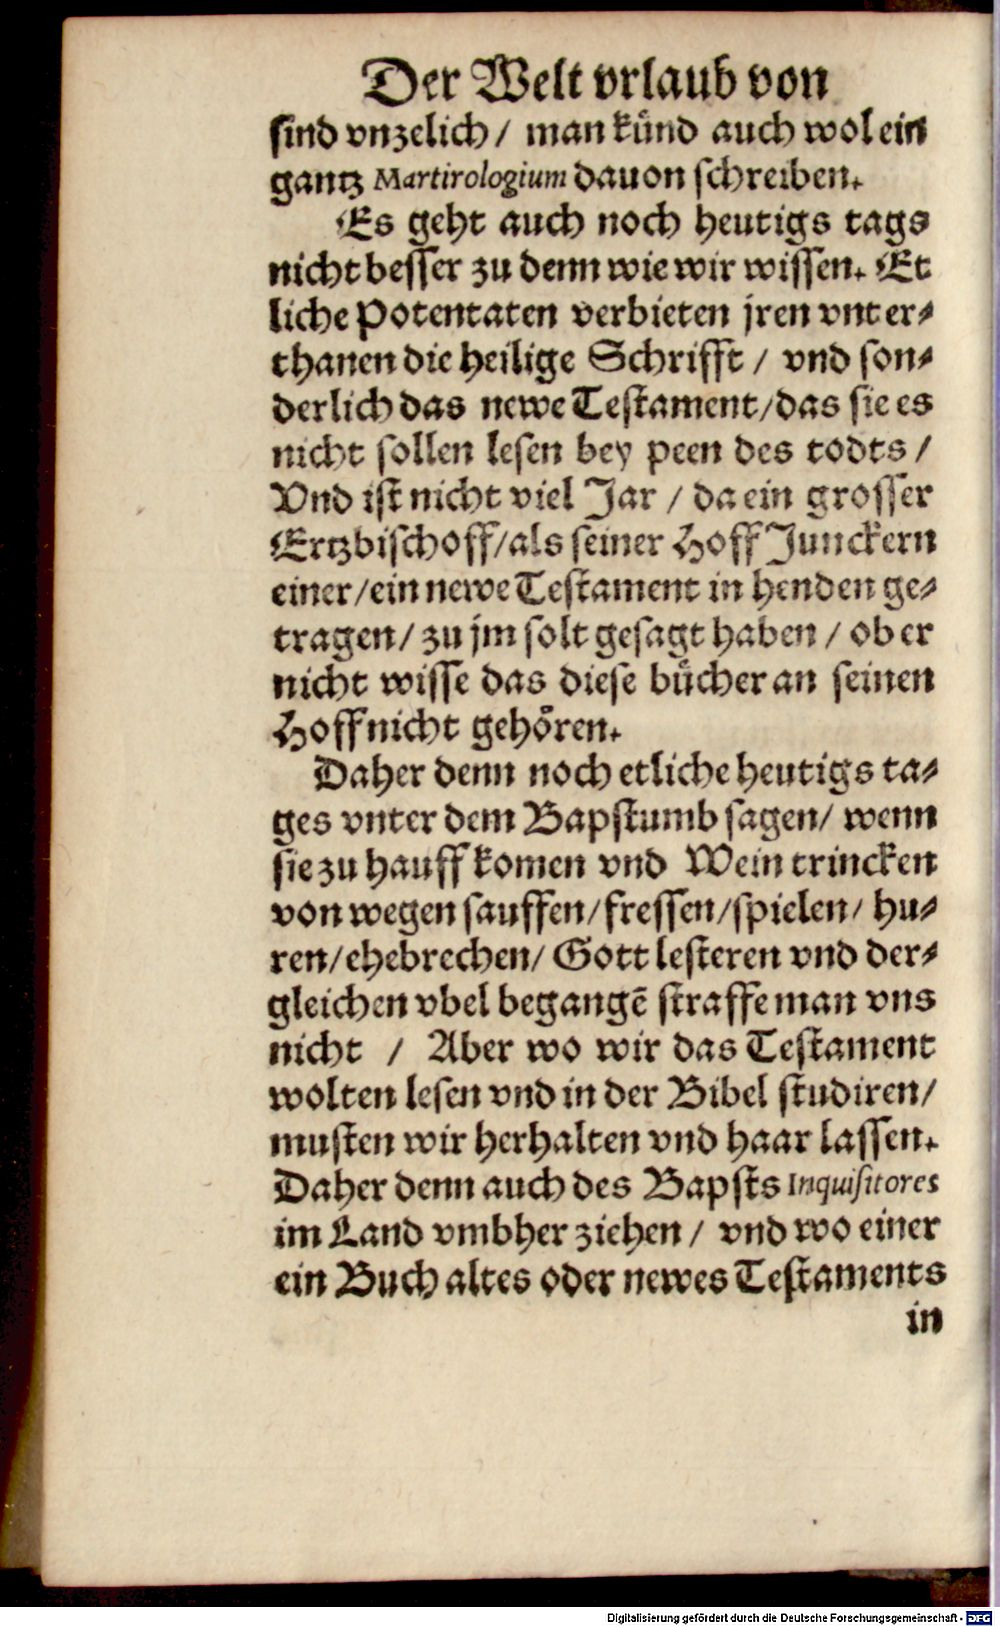 Der Welt vrlaub von
sind vnzelich / man künd auch wol ein
gantz Martirologium dauon schreiben.
Es geht auch noch heutigs tags
nicht besser zu denn wie wir wissen. Et
liche Potentaten verbieten jren vnter⸗
thanen die heilige Schrifft / vnd son⸗
derlich das newe Testament / das sie es
nicht sollen lesen bey peen des todts /
Vnd ist nicht viel Jar / da ein grosser
Ertzbischoff / als seiner Hoff Junckern
einer / ein newe Testament in henden ge⸗
tragen / zu jm solt gesagt haben / ob er
nicht wisse das diese bücher an seinen
Hoff nicht gehören.
Daher denn noch etliche heutigs ta⸗
ges vnter dem Bapstumb sagen / wenn
sie zu hauff komen vnd Wein trincken
von wegen sauffen / fressen / spielen / hu⸗
ren / ehebrechen / Gott lesteren vnd der⸗
gleichen vbel begangẽ straffe man vns
nicht / Aber wo wir das Testament
wolten lesen vnd in der Bibel studiren /
musten wir herhalten vnd haar lassen.
Daher denn auch des Bapsts Inquisitores
im Land vmbher ziehen / vnd wo einer
ein Buch altes oder newes Testaments
in
Digitalisierung gefördert durch die Deutsche Forschungsgemeinschaft - DFG